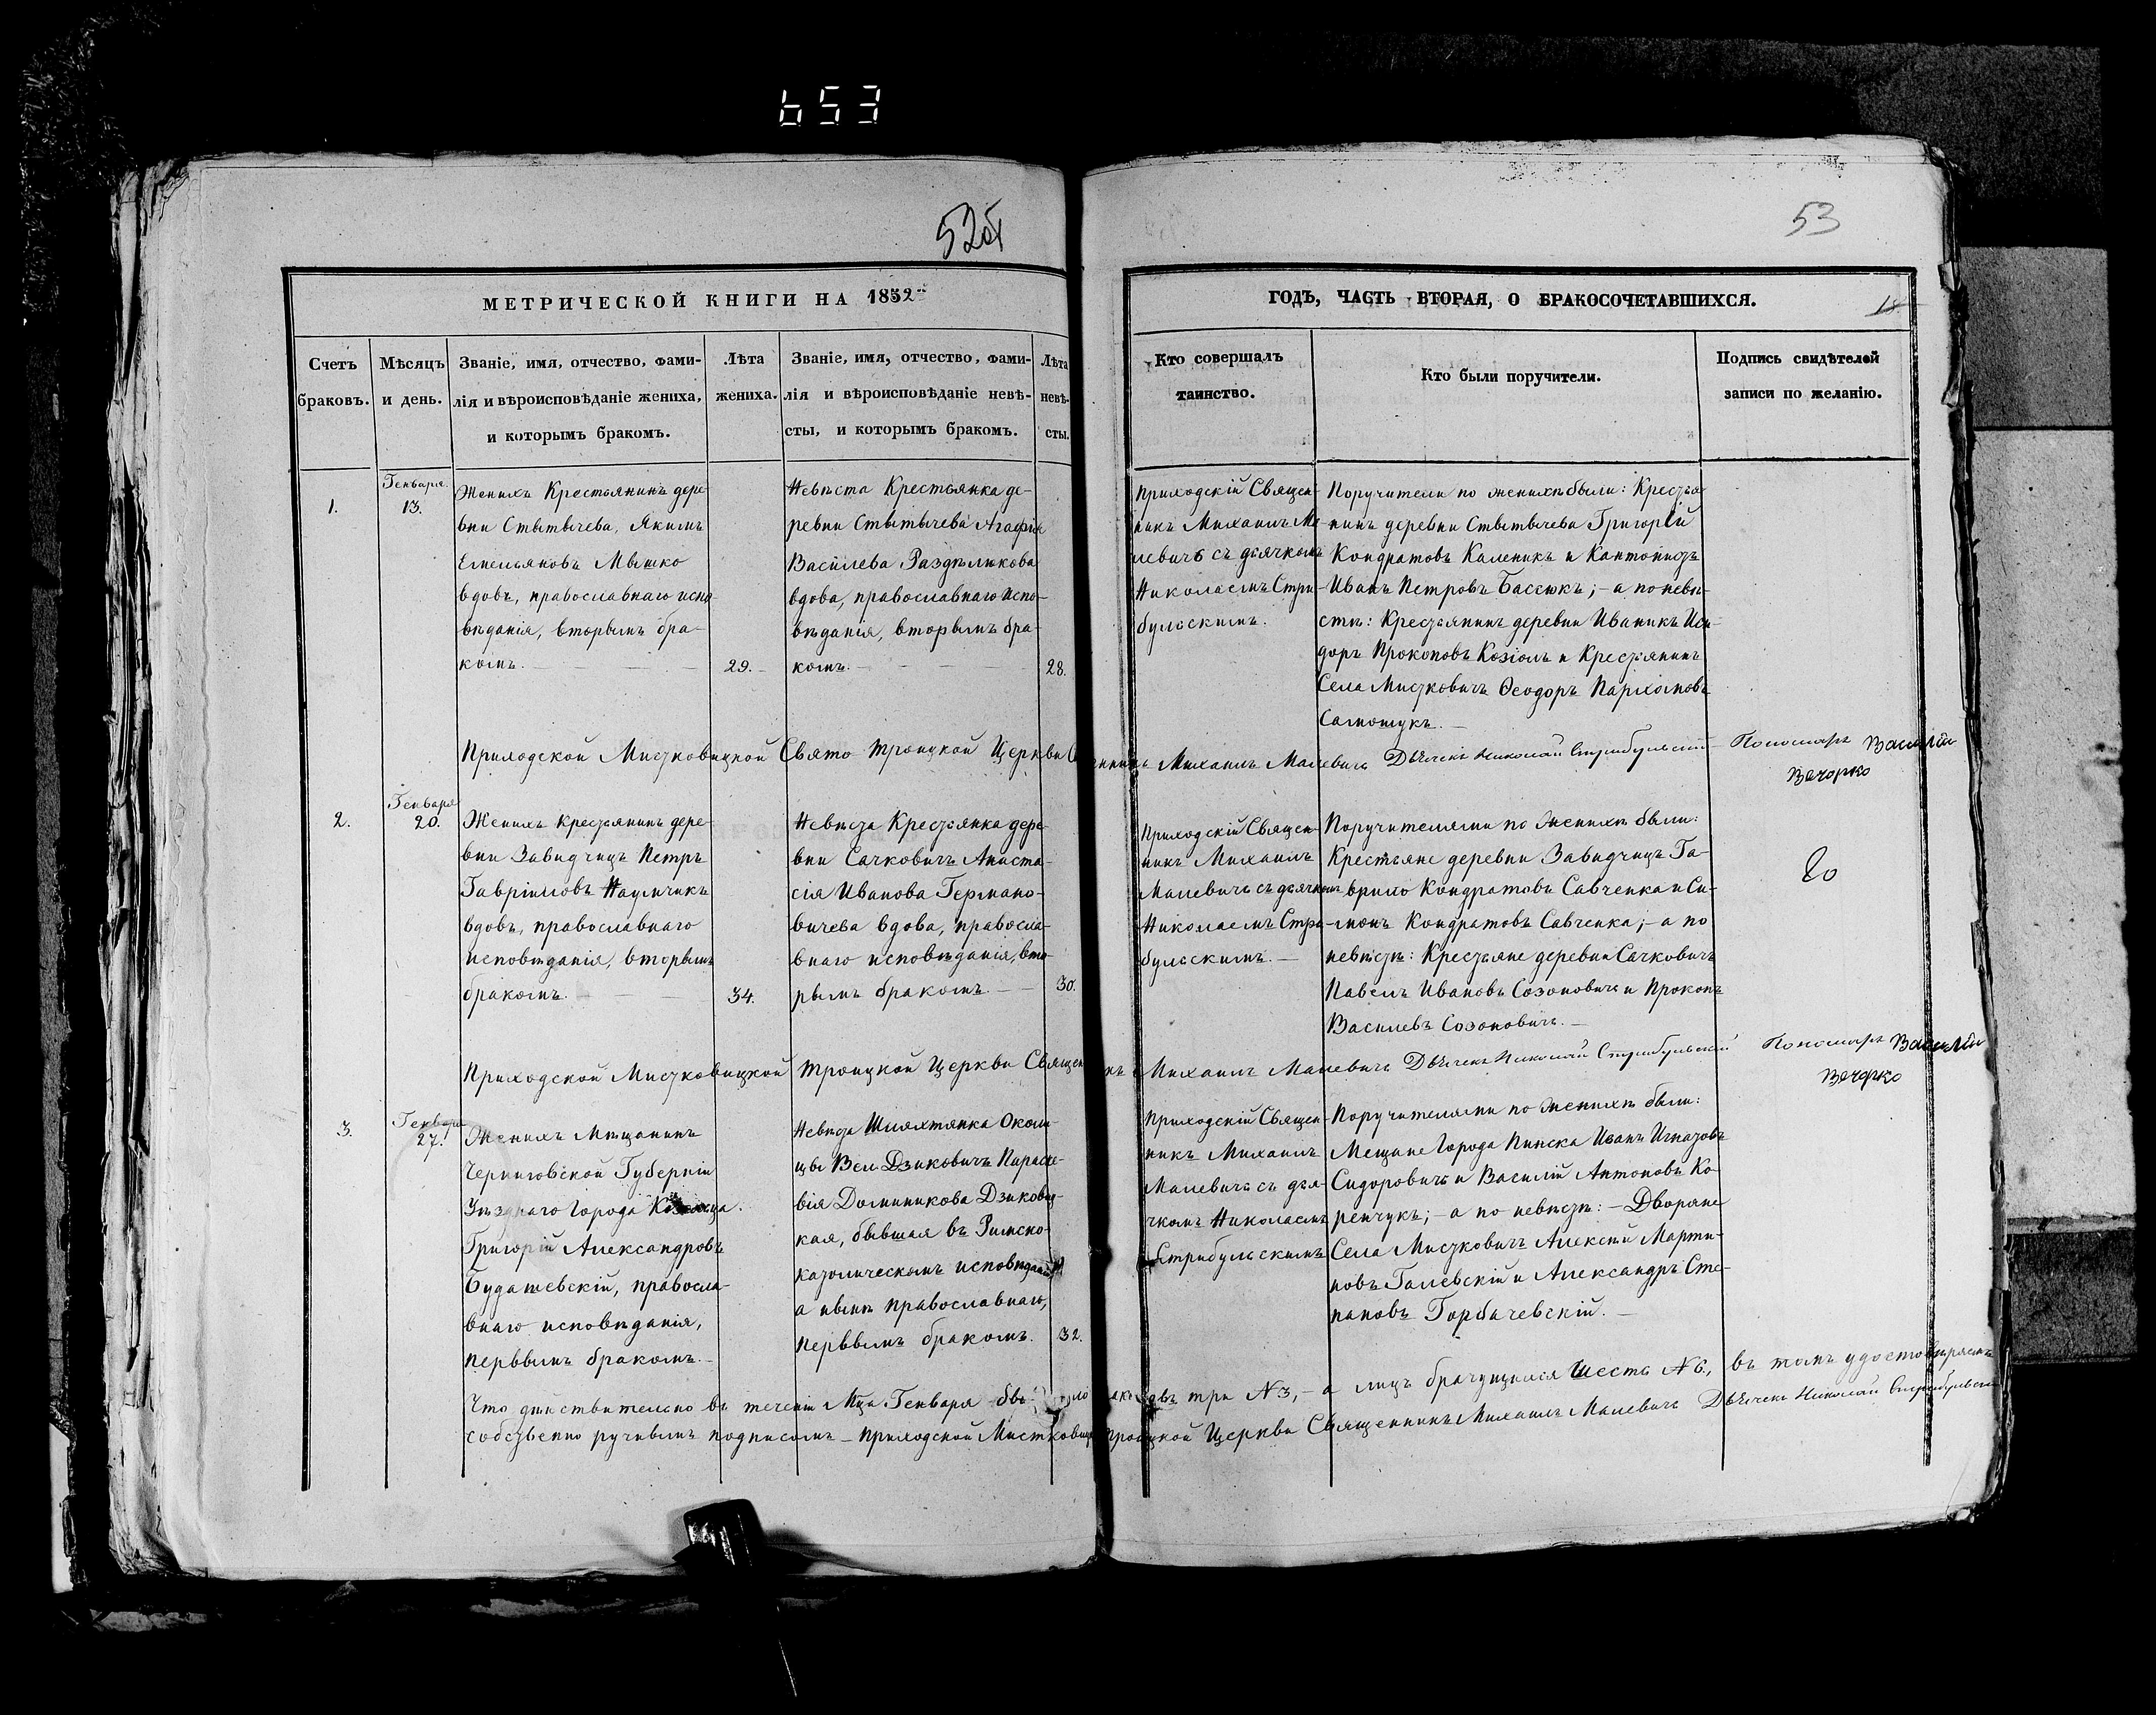 653
52об
53
МЕТРИЧЕСКОЙ КНИГИ НА 1852
ГОДЪ, ЧАСТЬ ВТОРАЯ, О БРАКОСОЧЕТАВШИХСЯ.
Счетъ
браковъ.
Мѣсяцъ
и день.
Званіе, имя, отчество, фами-
лія и вѣроисповѣданіе жениха,
и которымъ бракомъ.
Лѣта
жениха.
Званіе, имя, отчество, фами-
лія и вѣроисповѣданіе невѣ-
сты, и которымъ бракомъ.
Лѣта
невѣ-
сты.
Кто совершалъ
таинство.
Кто были поручители.
Подпись свидѣтелей
записи по желанію.
1.
Генваря
13.
Женихъ Крестьянинъ дере-
вни Стытычева, Якимъ
Емельяновъ Мышко
вдовъ, православнаго испо-
вѣданія, вторымъ бра-
комъ.
29.
Невѣста Крестьянка де-
ревни Стытычева Агафія
Васильева Раздѣликова
вдова, православнаго испо-
вѣданія, вторымъ бра-
комъ.
28.
Приходскій Священ-
никъ Михаилъ Ма-
левичъ съ дьячкомъ
Николаемъ Стри-
бульскимъ.
Поручители по женихѣ были: Крестья-
нинъ деревни Стытычева Григорій
Кондратовъ Каленикъ и Кантонистъ
Иванъ Петровъ Бассюкъ; – а по невѣ-
стѣ: Крестьянинъ деревни Иваникъ Иси-
доръ Прокоповъ Козіолъ и Крестьянинъ
Села Мистковичъ Ѳеодоръ Пархомовъ
Самошукъ. –
Приходской Мистковицкой Свято Троицкой Церкви Священникъ Михаилъ Малевичъ Дьячекъ Николай Стрибульскій Пономарь Василій
Вечорко
2.
Генваря
20.
Женихъ крестьянинъ дере-
вни Завидчицъ Петръ
Гавріиловъ Наумчикъ
вдовъ, православнаго
исповѣданія, вторымъ
бракомъ.
34.
Невѣста Крестьянка дере-
вни Сачковичъ Анаста-
сія Иванова Германо-
вичева вдова, правосла-
внаго исповѣданія, вто-
рымъ бракомъ.
30.
Приходскій Священ-
никъ Михаилъ
Малевичъ съ дьячкомъ
Николаемъ Стри-
бульскимъ. –
Поручителями по Женихѣ были:
Крестьяне деревни Завидчицъ Га-
врило Кондратовъ Савченка и Си-
монъ Кондратовъ Савченка; – а по
невѣстѣ: Крестьяне деревни Сачковичъ
Павелъ Ивановъ Созоновичъ и Прокопъ
Василевъ Созоновичъ. –
Приходской Мистковицкой Троицкой Церкви Священникъ Михаилъ Малевичъ Дьячекъ Николай Стрибульскій Пономарь Василій
Вечорко
3.
Генваря
27.
Женихъ Мѣщанинъ
Черниговской Губерніи
Уѣзднаго Города
Григорій Александровъ
Будашевскій, правосла-
внаго исповѣданія,
первымъ бракомъ. –
Невѣста Шляхтянка Околи-
цы Вел. Дзиковичъ Параске-
вія Доминикова Дзикови-
кая, бывшая въ Римско-
католическомъ исповѣданіи
а нынѣ православнаго,
первымъ бракомъ.
32.
Приходскій Священ-
никъ Михаилъ
Малевичъ съ дья-
чкомъ Николаемъ
Стрибульскимъ
Поручителями по женихѣ были:
Мещане Города Пинска Иванъ Игнатовъ
Сидоровичъ и Василій Антоновъ Ко-
ренчукъ; – а по невѣстѣ: – Дворяне
Села Мистковичъ Алексѣй Марти-
новъ Галевскій и Александръ Сте-
пановъ Горбачевскій. –
Что дѣйствительно въ теченіи Мца Генваря было браковъ три №3, – а лицъ брачущихся Шесть №6, въ томъ удостовѣряемъ
собственно ручнымъ подписомъ – Приходской Мистковицкой Троицкой Церкви Священникъ Михаилъ Малевичъ Дьячекъ Николай Стрибульскій